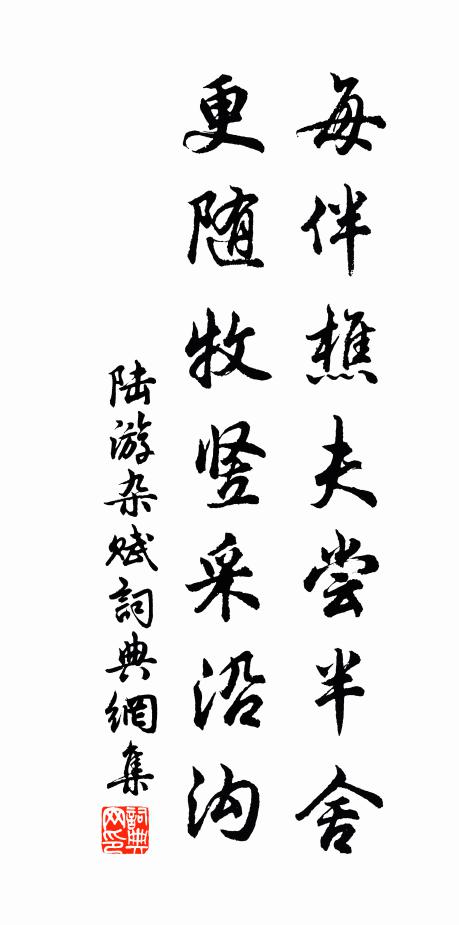 每伴樵夫尝半舍
更随牧竖采沿沟
陆游杂赋詞典網集
詞典网印